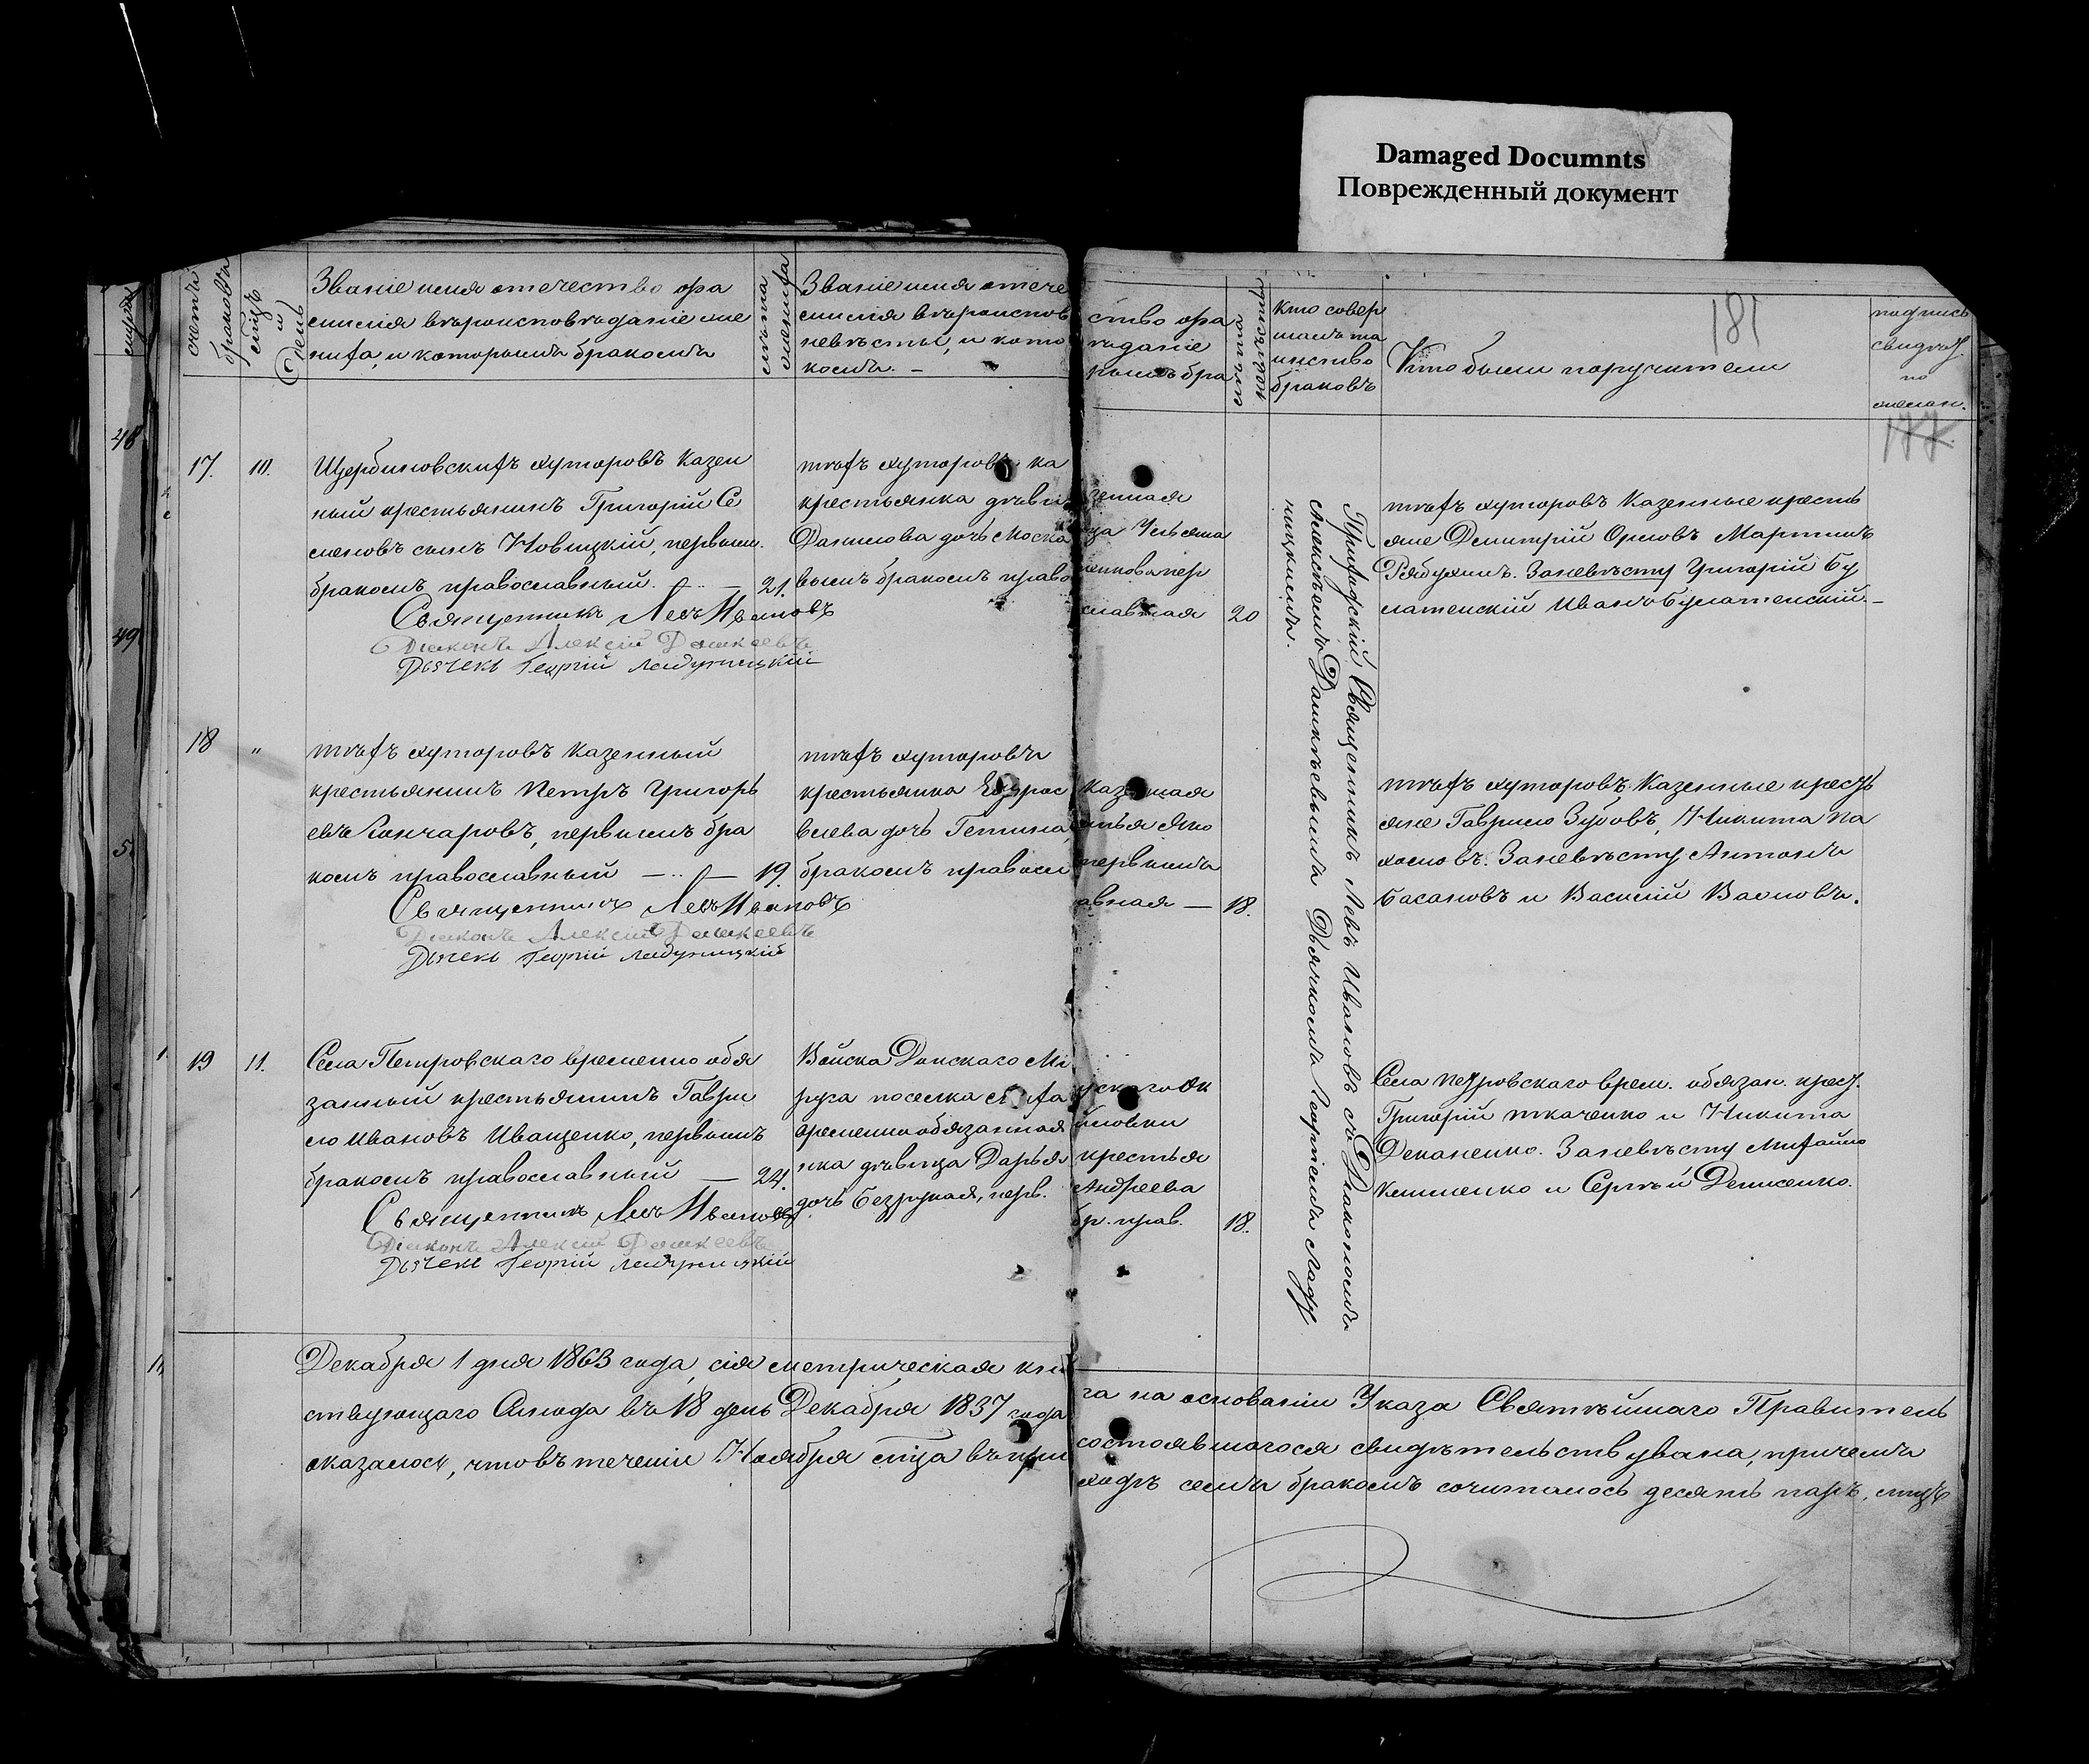 Damaged Documnts
Поврежденный документ
181
счетъ браковъ
мцъ и День
Званіе имя отчество фа
милія вѣроисповѣданіе же
ниха, и которымъ бракомъ
лѣта жениха
Званіе имя отече
ство фа
милія вѣроисповѣданіе
невѣсты, и которымъ бра
комъ. –
лѣта невѣсты
кто совер
шалъ та
инство
браковъ
Кто были поручители
подпись
свидѣт.
по
желан.
177
48
49
17.
10.
Щербиновскихъ хуторовъ казен
ный крестьянинъ Григорій Се
меновъ сынъ Новицкій, первым.
бракомъ православный. — 21.
Священникъ Левъ Ивановъ
Діаконъ Алексій Дашкеевъ
Дьячекъ Георгій Ладухицкій
тѣхъ хуторовъ ка
зенная
крестьянка дѣви
ца Ульяна
Данилова дочь Моска
ленкова пер
вымъ бракомъ право
славная
20
тѣхъ хуторовъ Казенные кресть
яне Димитрій Орловъ Мартинъ
Рябухинъ. Заневѣсту Григорій Бу
латенскій Иванъ Булатенскій. –
Приходскій Священникъ Левъ Ивановъ съ Діакономъ
Алексѣемъ Дашкѣевымъ Дьячкомъ Георгіемъ Ладу
хицкимъ.
18
"
тѣхъ хуторовъ Казенный
крестьянинъ Петръ Григорь
евъ Гончаровъ, первымъ бра
комъ православный — 19.
Священникъ Левъ Ивановъ
Діаконъ Алексій Дашкеевъ
Дьячекъ Георгій Ладухицкій
тѣхъ хуторовъ
казенная
крестьянка Ефрос
инья Яко
влева дочь Гетина,
первымъ
бракомъ правосл
авная — 18.
тѣхъ хуторовъ Казенные крест
яне Гаврило Зубовъ, Никита Па
холовъ. Заневѣсту Антонъ
Басановъ и Василій Васловъ.
19
11.
Села Петровскаго временно обя
занный крестьянинъ Гаври
ло Ивановъ Иващенко, первымъ
бракомъ православный — 24.
Священникъ Левъ Ивановъ
Діаконъ Алексій Дашкеевъ
Дьячекъ Георгій Ладухицкій
Войска Донскаго Мі
ускаго Ок
руга поселка
временно обязанная
крестья
нка дѣвица Дарья
Андреева
дочь Безрукая, перв.
бр. прав. 18.
Села Петровскаго врем. обязан. крест.
Григорій Ткаченко и Никита
Деканенко. Заневѣсту Михайло
Клименко и Сергѣй Денисенко.
Декабря 1 дня 1863 года, сія метрическая кни
га на основаніи Указа Святѣйшаго Правитель
ствующаго Синода въ 18 день Декабря 1837 года
состоявшагося свидѣтельствувана, причемъ
оказалось, что въ теченіи Ноября мца въ при
ходѣ семъ бракомъ сочиталось десять паръ.